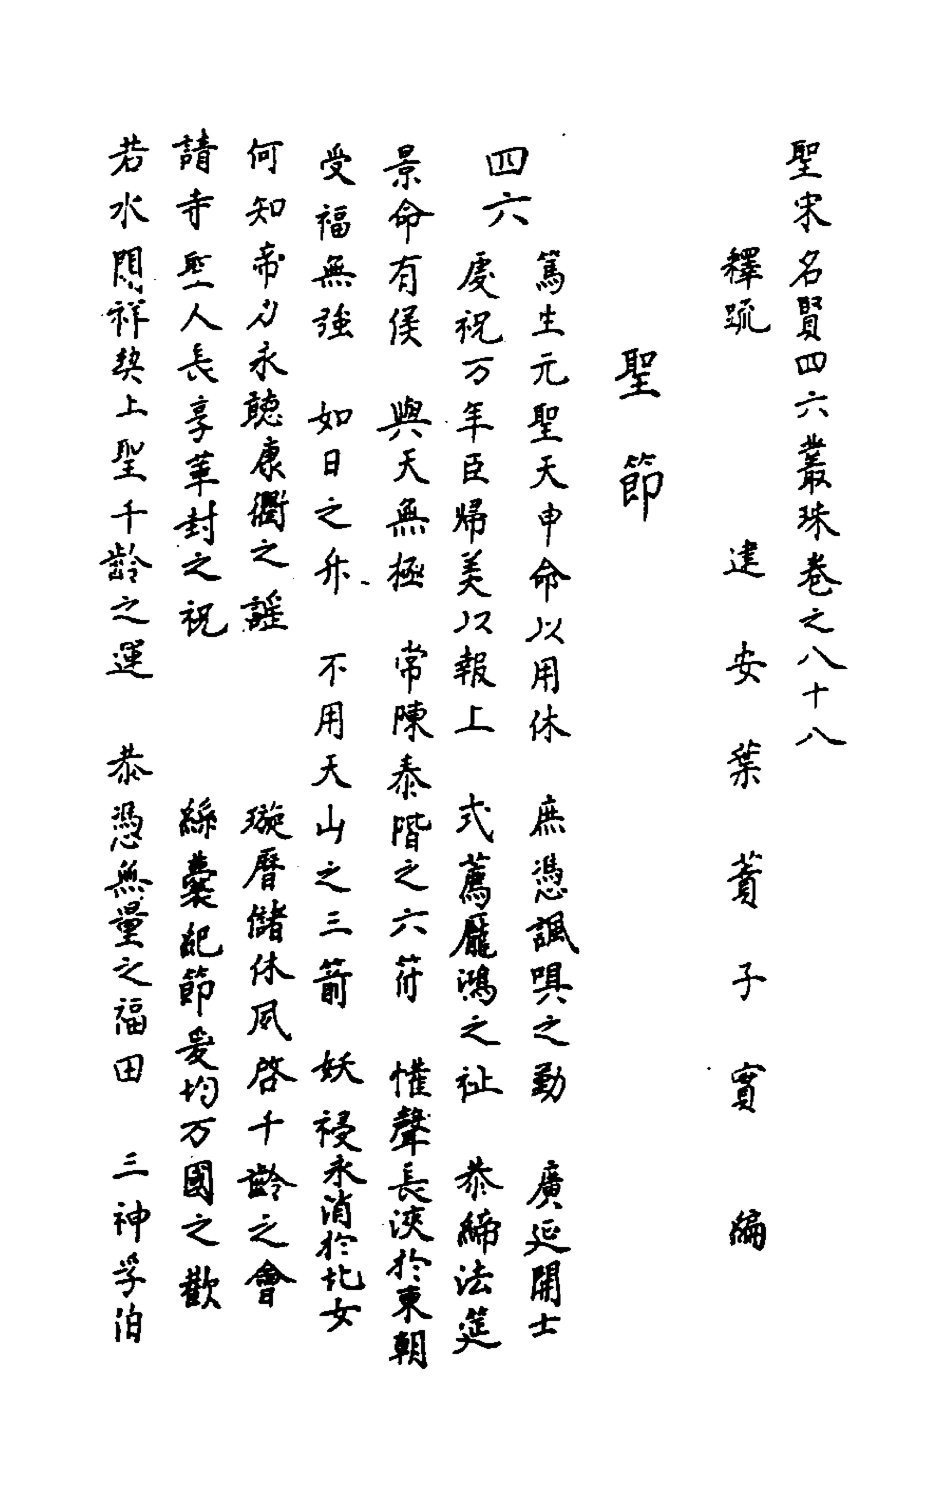 聖宋名賢四六叢珠卷之八十八
釋疏 建安葉蕡子實編
聖節
四六
篤生元聖天申命以用休 庶憑諷唄之勤 廣延開士
虔祝万年臣歸美以報上 式薦龎鴻之祉 恭締法筵
景命有僕 與天無極 常陳泰階之六苻 懽聲長浹於東朝
受福無強 如日之升 不用天山之三箭 妖祲永消於北女
何知帝力永聽康衢之謡 璇曆儲休夙啓千齡之會
請寺聖人長享華封之祝 絲囊紀節爰均万國之歡
若水閟祥契上聖千齡之運 恭憑無量之福田 三神孚洎